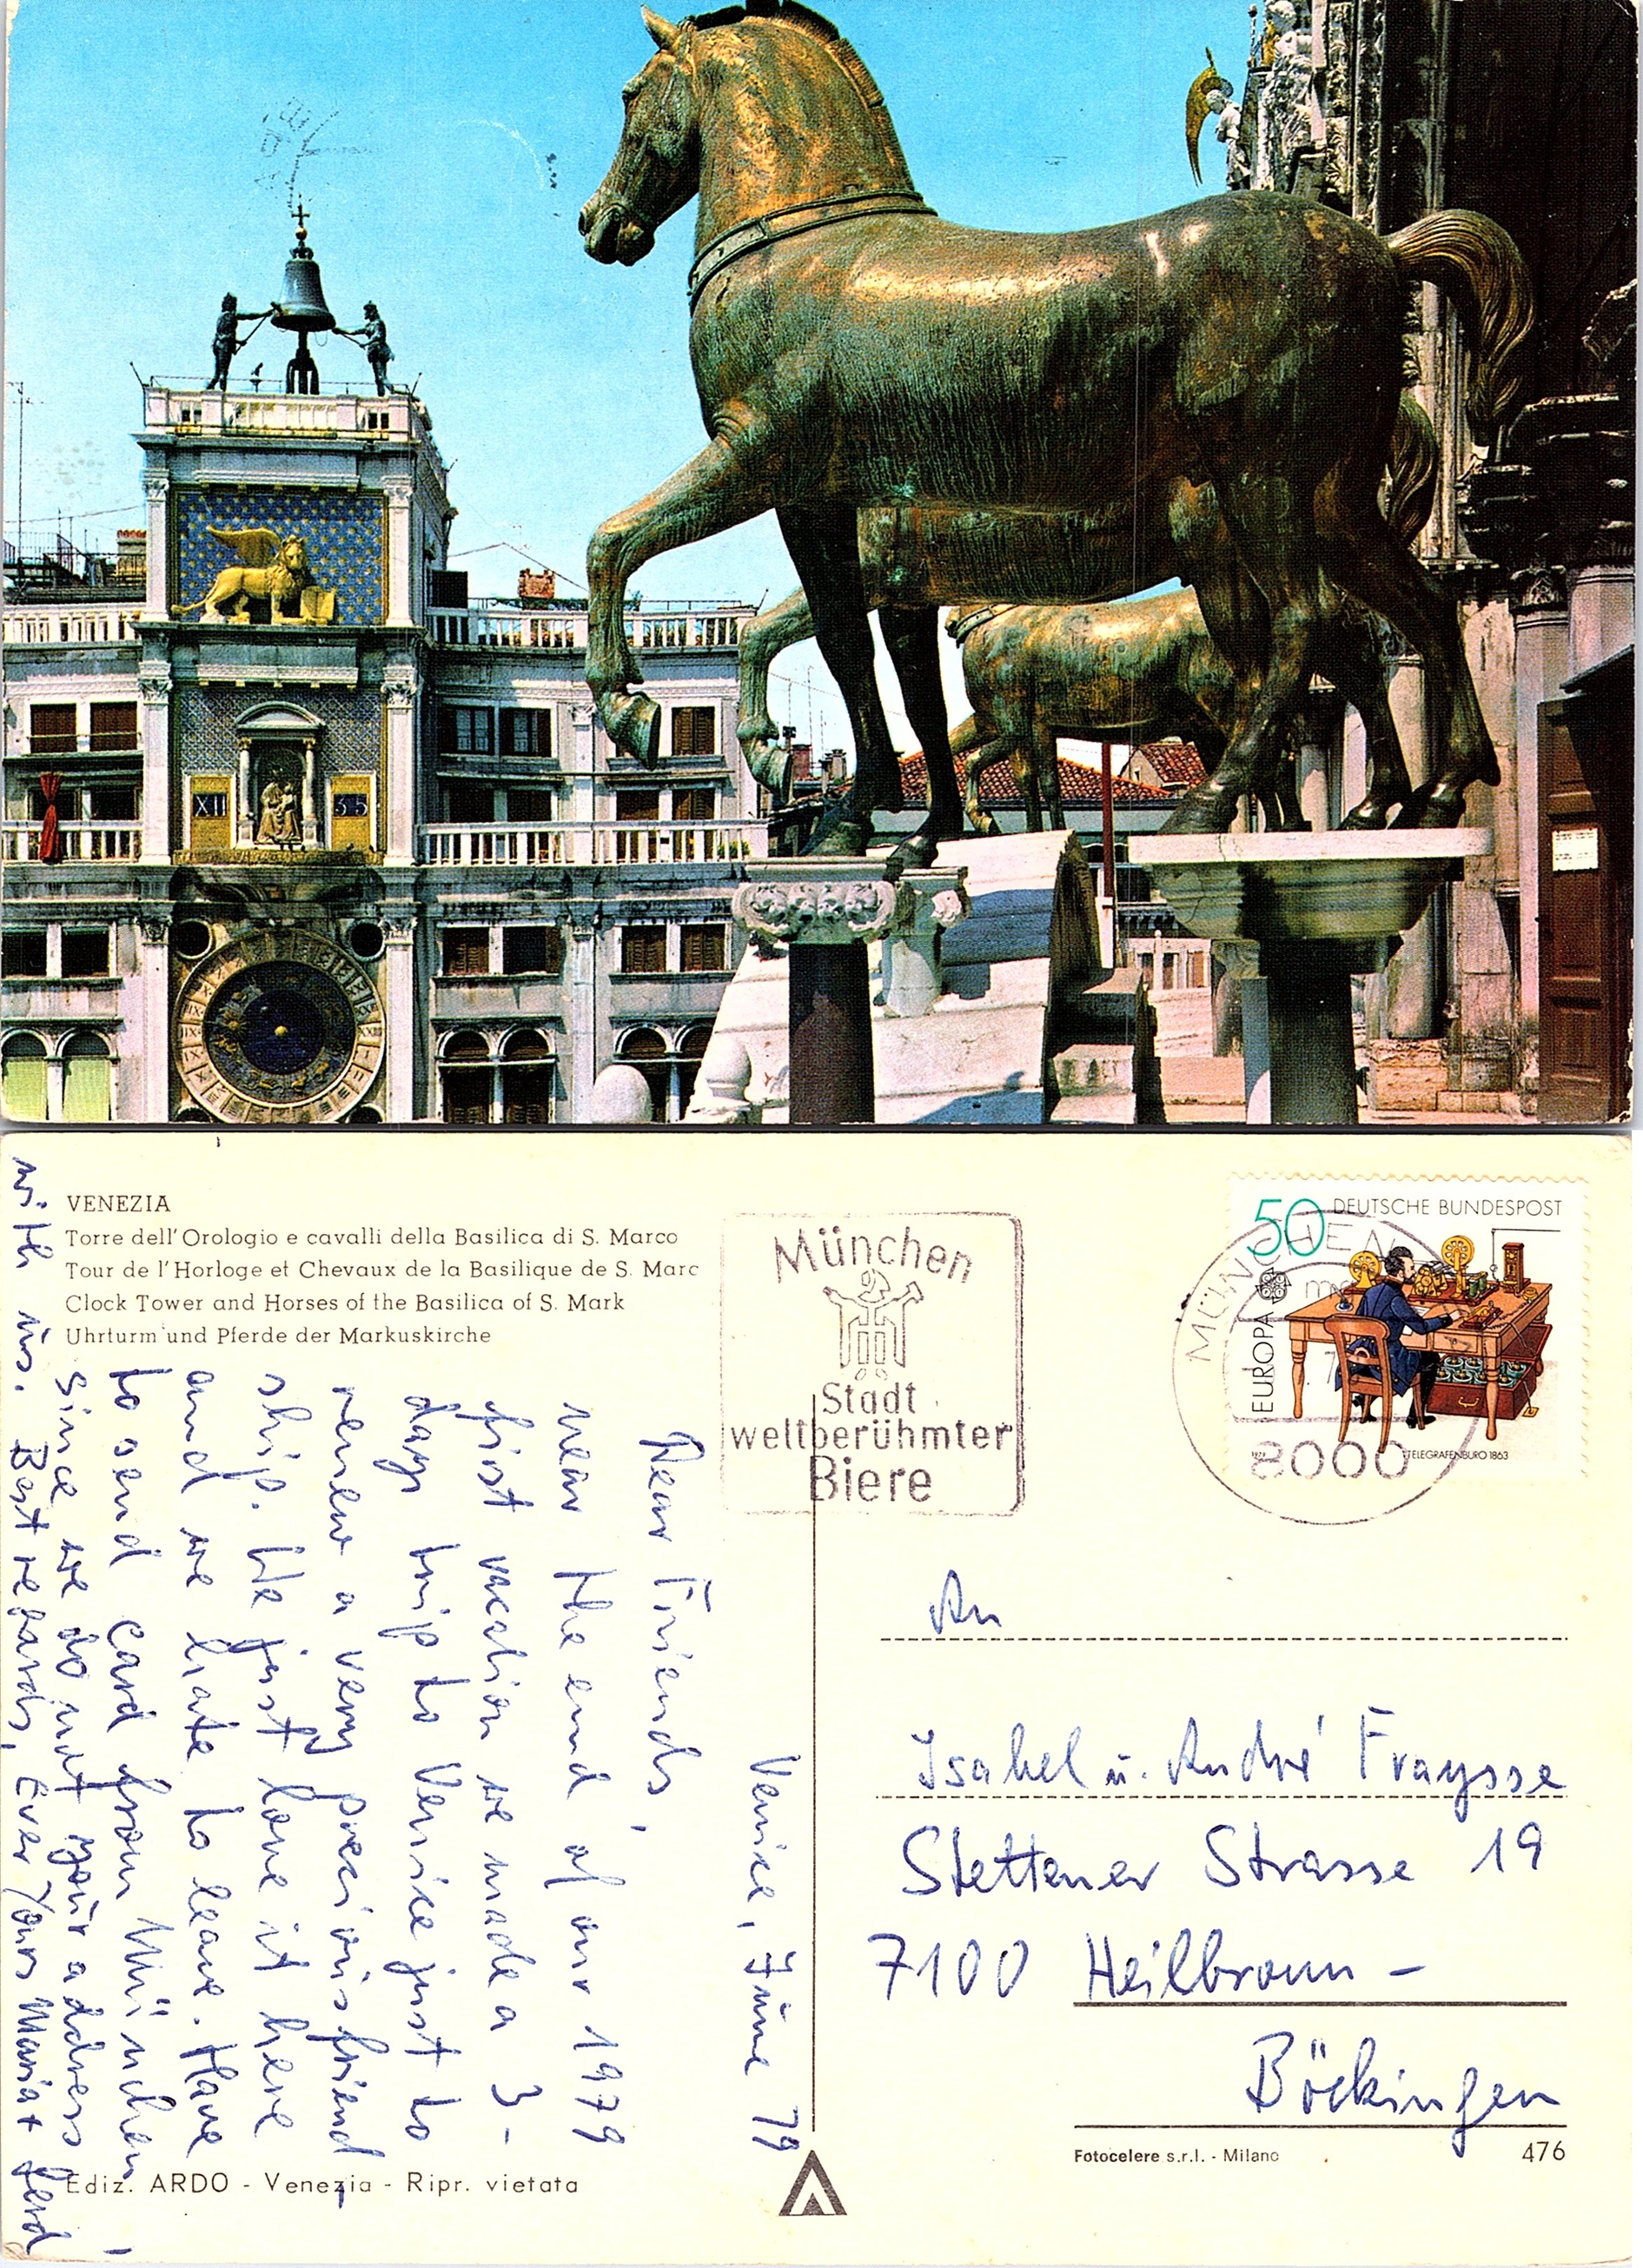 XII 35
VENEZIA
Torre dell'Orologio e cavalli della Basilica di S. Marco
Tour de l'Horloge et Chevaux de la Basilique de S. Marc
Clock Tower and Horses of the Basilica of S. Mark
Uhrturm und Pferde der Markuskirche
München
Stadt
weltberühmter
Biere
50 DEUTSCHE BUNDESPOST
EUROPA
TELEGRAFENBÜRO 1863
MÜNCHEN
8000
Venice, June 79
Dear Friends,
near the end of our 1979
first vacation we made a 3-
days trip to Venice just to
renew a very precious friend-
ship. We just love it here
and we hate to leave. Have
to send card from München,
since we do not your address
with us. Best regards, Ever Yours Maria + Ferd
An
Isabel u. André Fraysse
Stettener Strasse 19
7100 Heilbronn -
Böckingen
Fotocelere s.r.l. - Milano
476
Ediz. ARDO - Venezia - Ripr. vietata